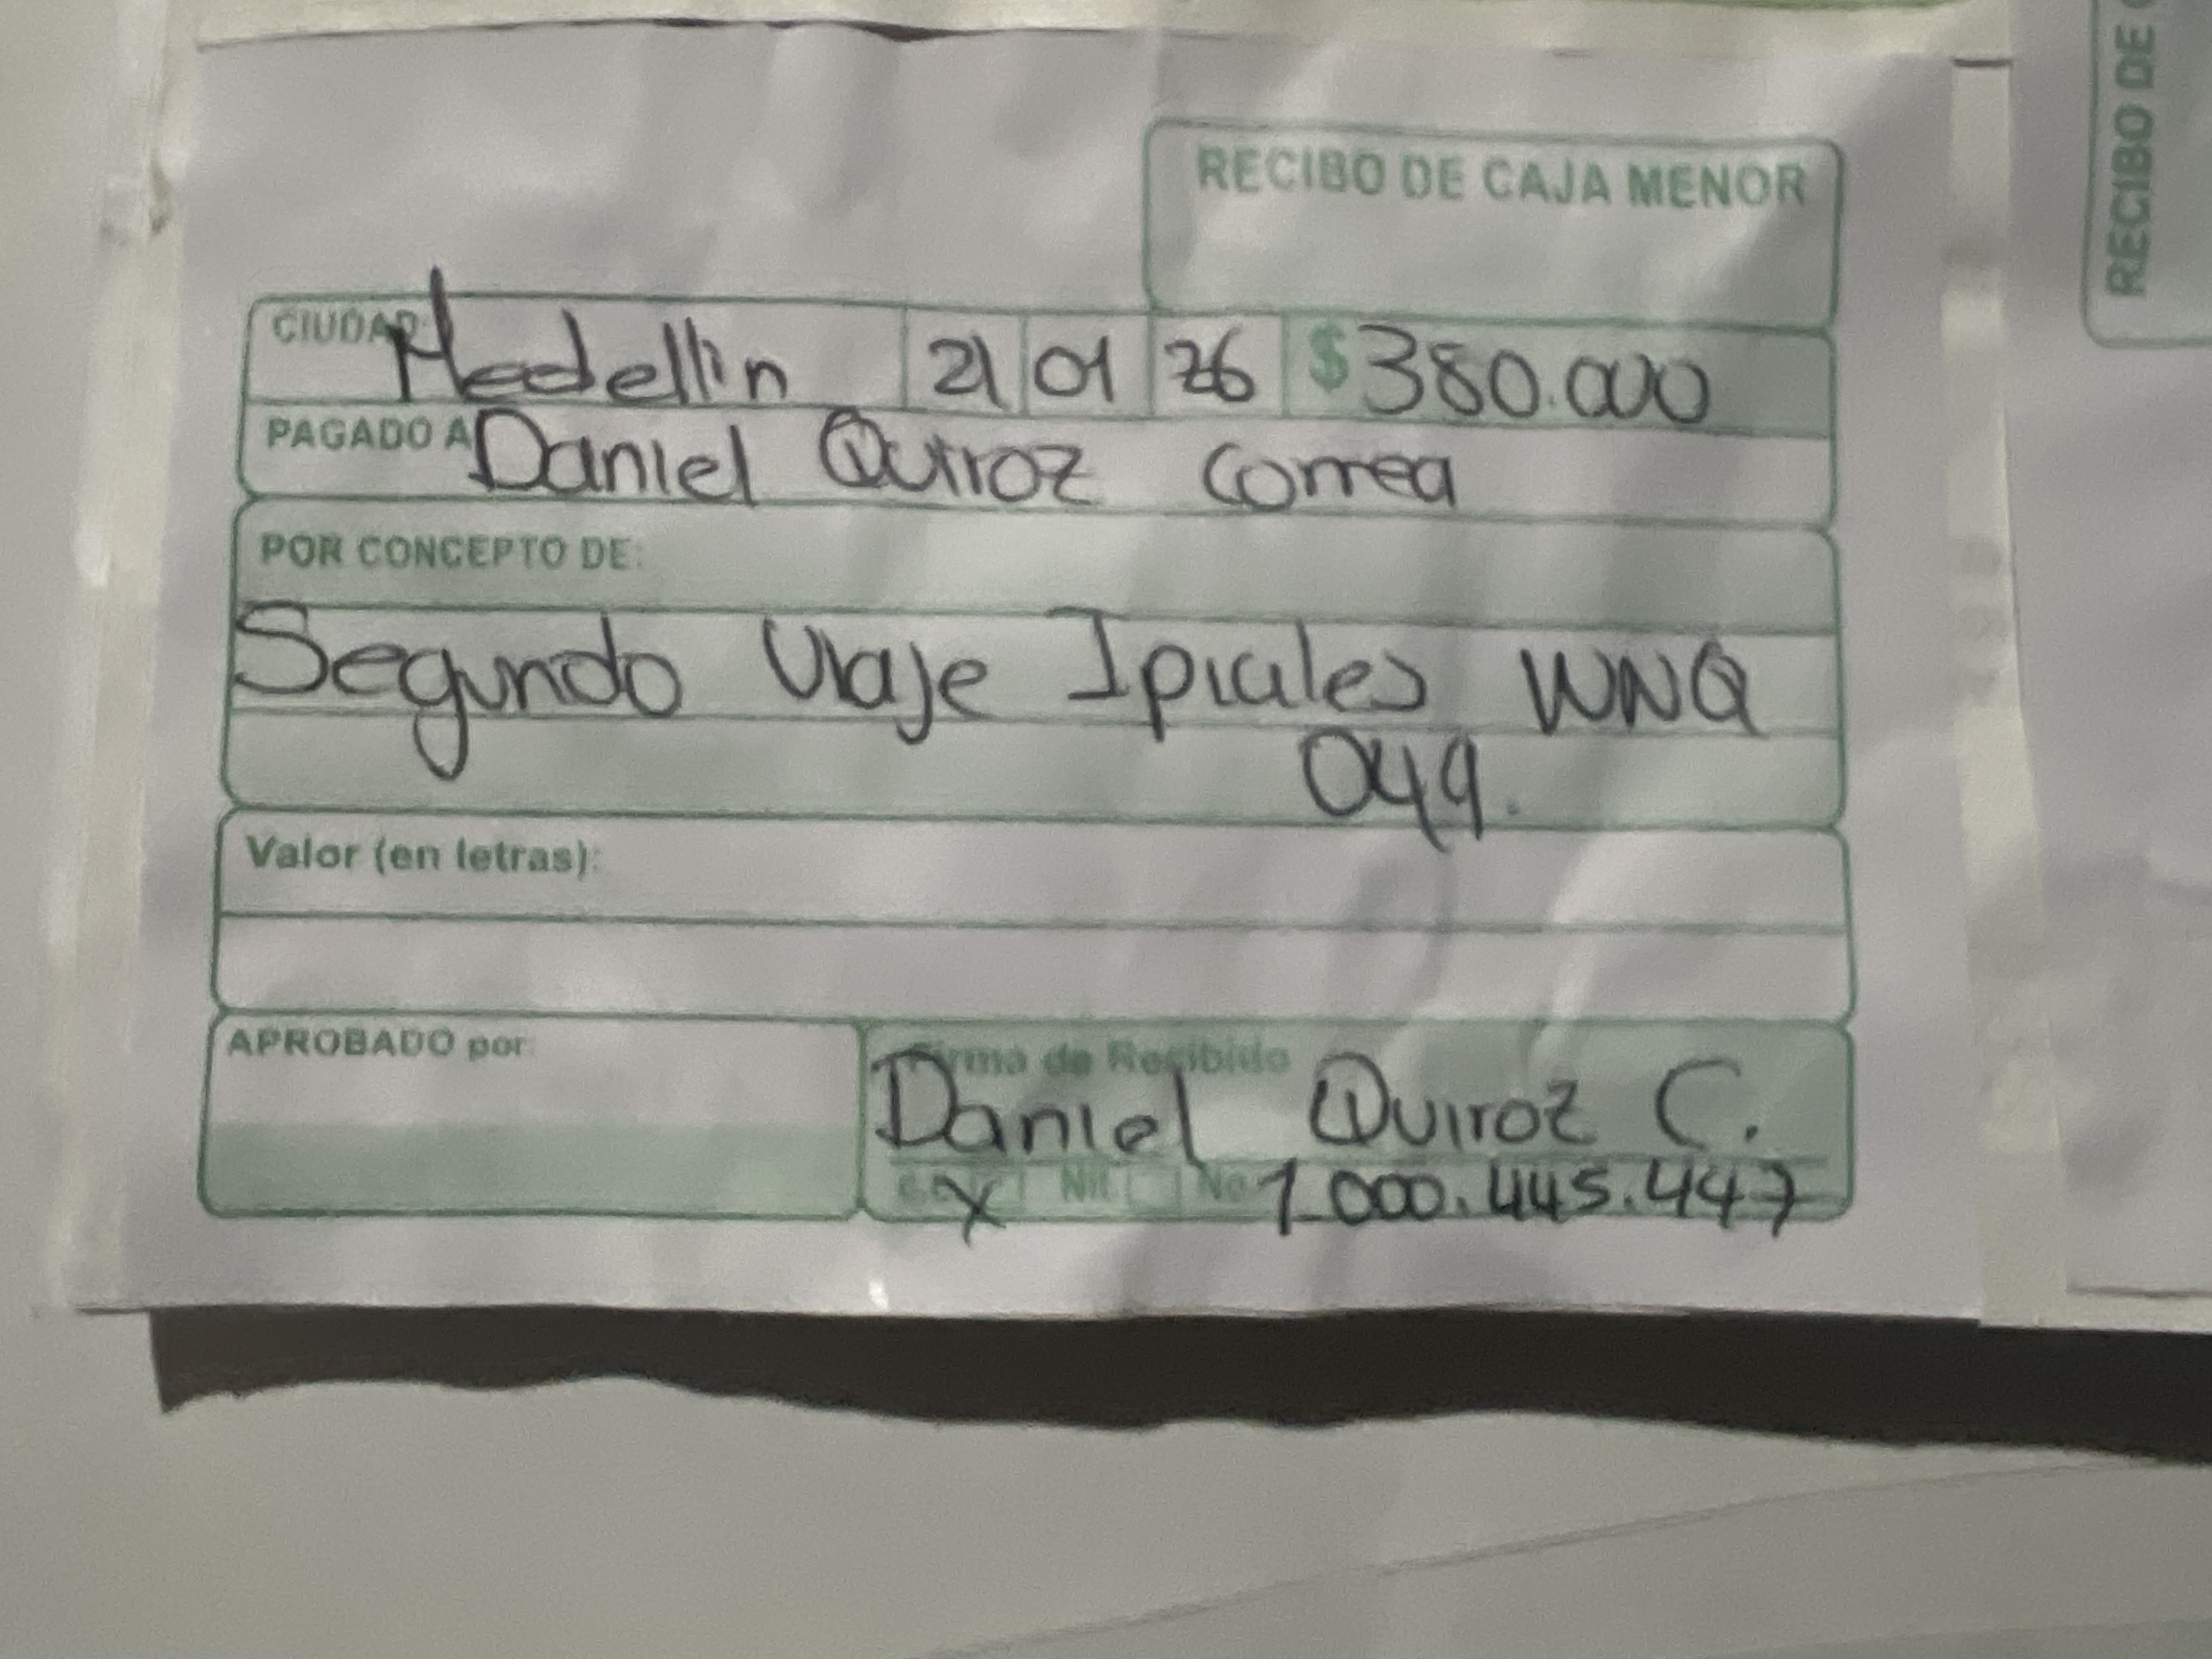 RECIBO DE CAJA MENOR
RECIBO DE
CIUDAD: Medellin 21 01 26 $ 380.000
PAGADO A Daniel Quiroz Correa
POR CONCEPTO DE:
Segundo Viaje Ipiales WNQ
049.
Valor (en letras):
APROBADO por:
Firma de Recibido
Daniel Quiroz C.
C.C. X Nit No 1.000.445.447